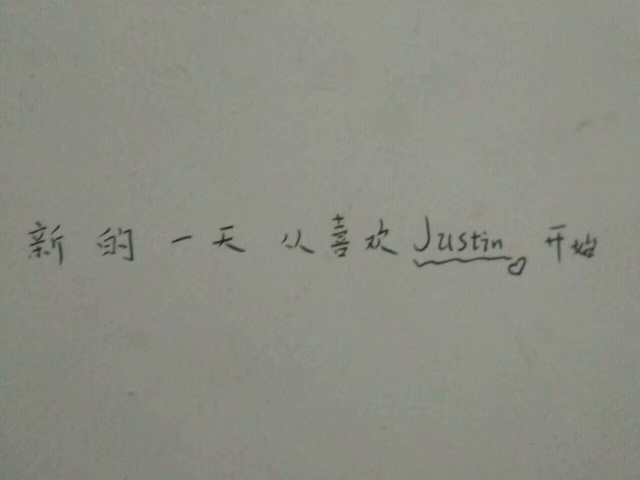 新的一天从喜欢Justin开始